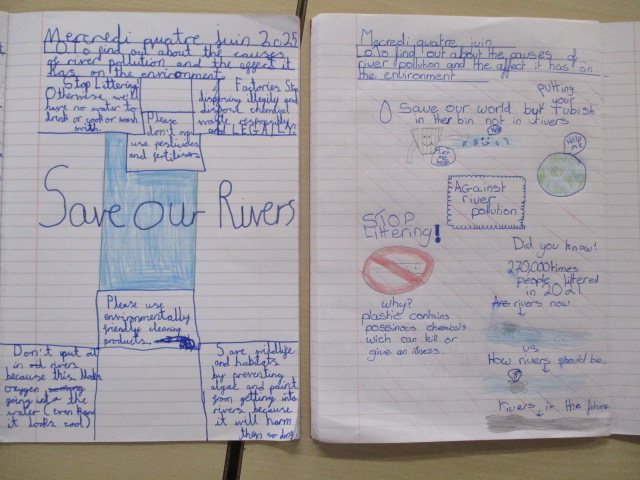 Mercredi quatre juin 2025
LO To find out about the causes
of river pollution and the affect it
has on the environment
Stop Littering
Otherwise we'll
have no water to
drink or cook or wash
with.
Please
don't
use pesticides
and fertilisers
Factories Stop
disposing illegally and
dispost chemical
waste responsibly
and LEGALLY!
Save Our Rivers
Please use
environmentally
friendly cleaning
products.
Don't put oil
in rivers
because this
oxygen
going into the
water (even
it looks cool)
Save wildlife
and habitats
by preventing
algae and paint
from getting into
rivers because
it will harm
them
Mercredi quatre juin
LO To find out about the causes of
river pollution and the affect it has on
the environment
putting
your
Save our world by rubish
in the bin not in rivers
Help
me
Against
river
pollution
STOP
Littering!
Did you know!
270,000 times
people littered
in 2021
Are rivers now
why?
plastic contains
possinous chemicals
wich can kill or
give an illness.
VS
How rivers should be
rivers in the future